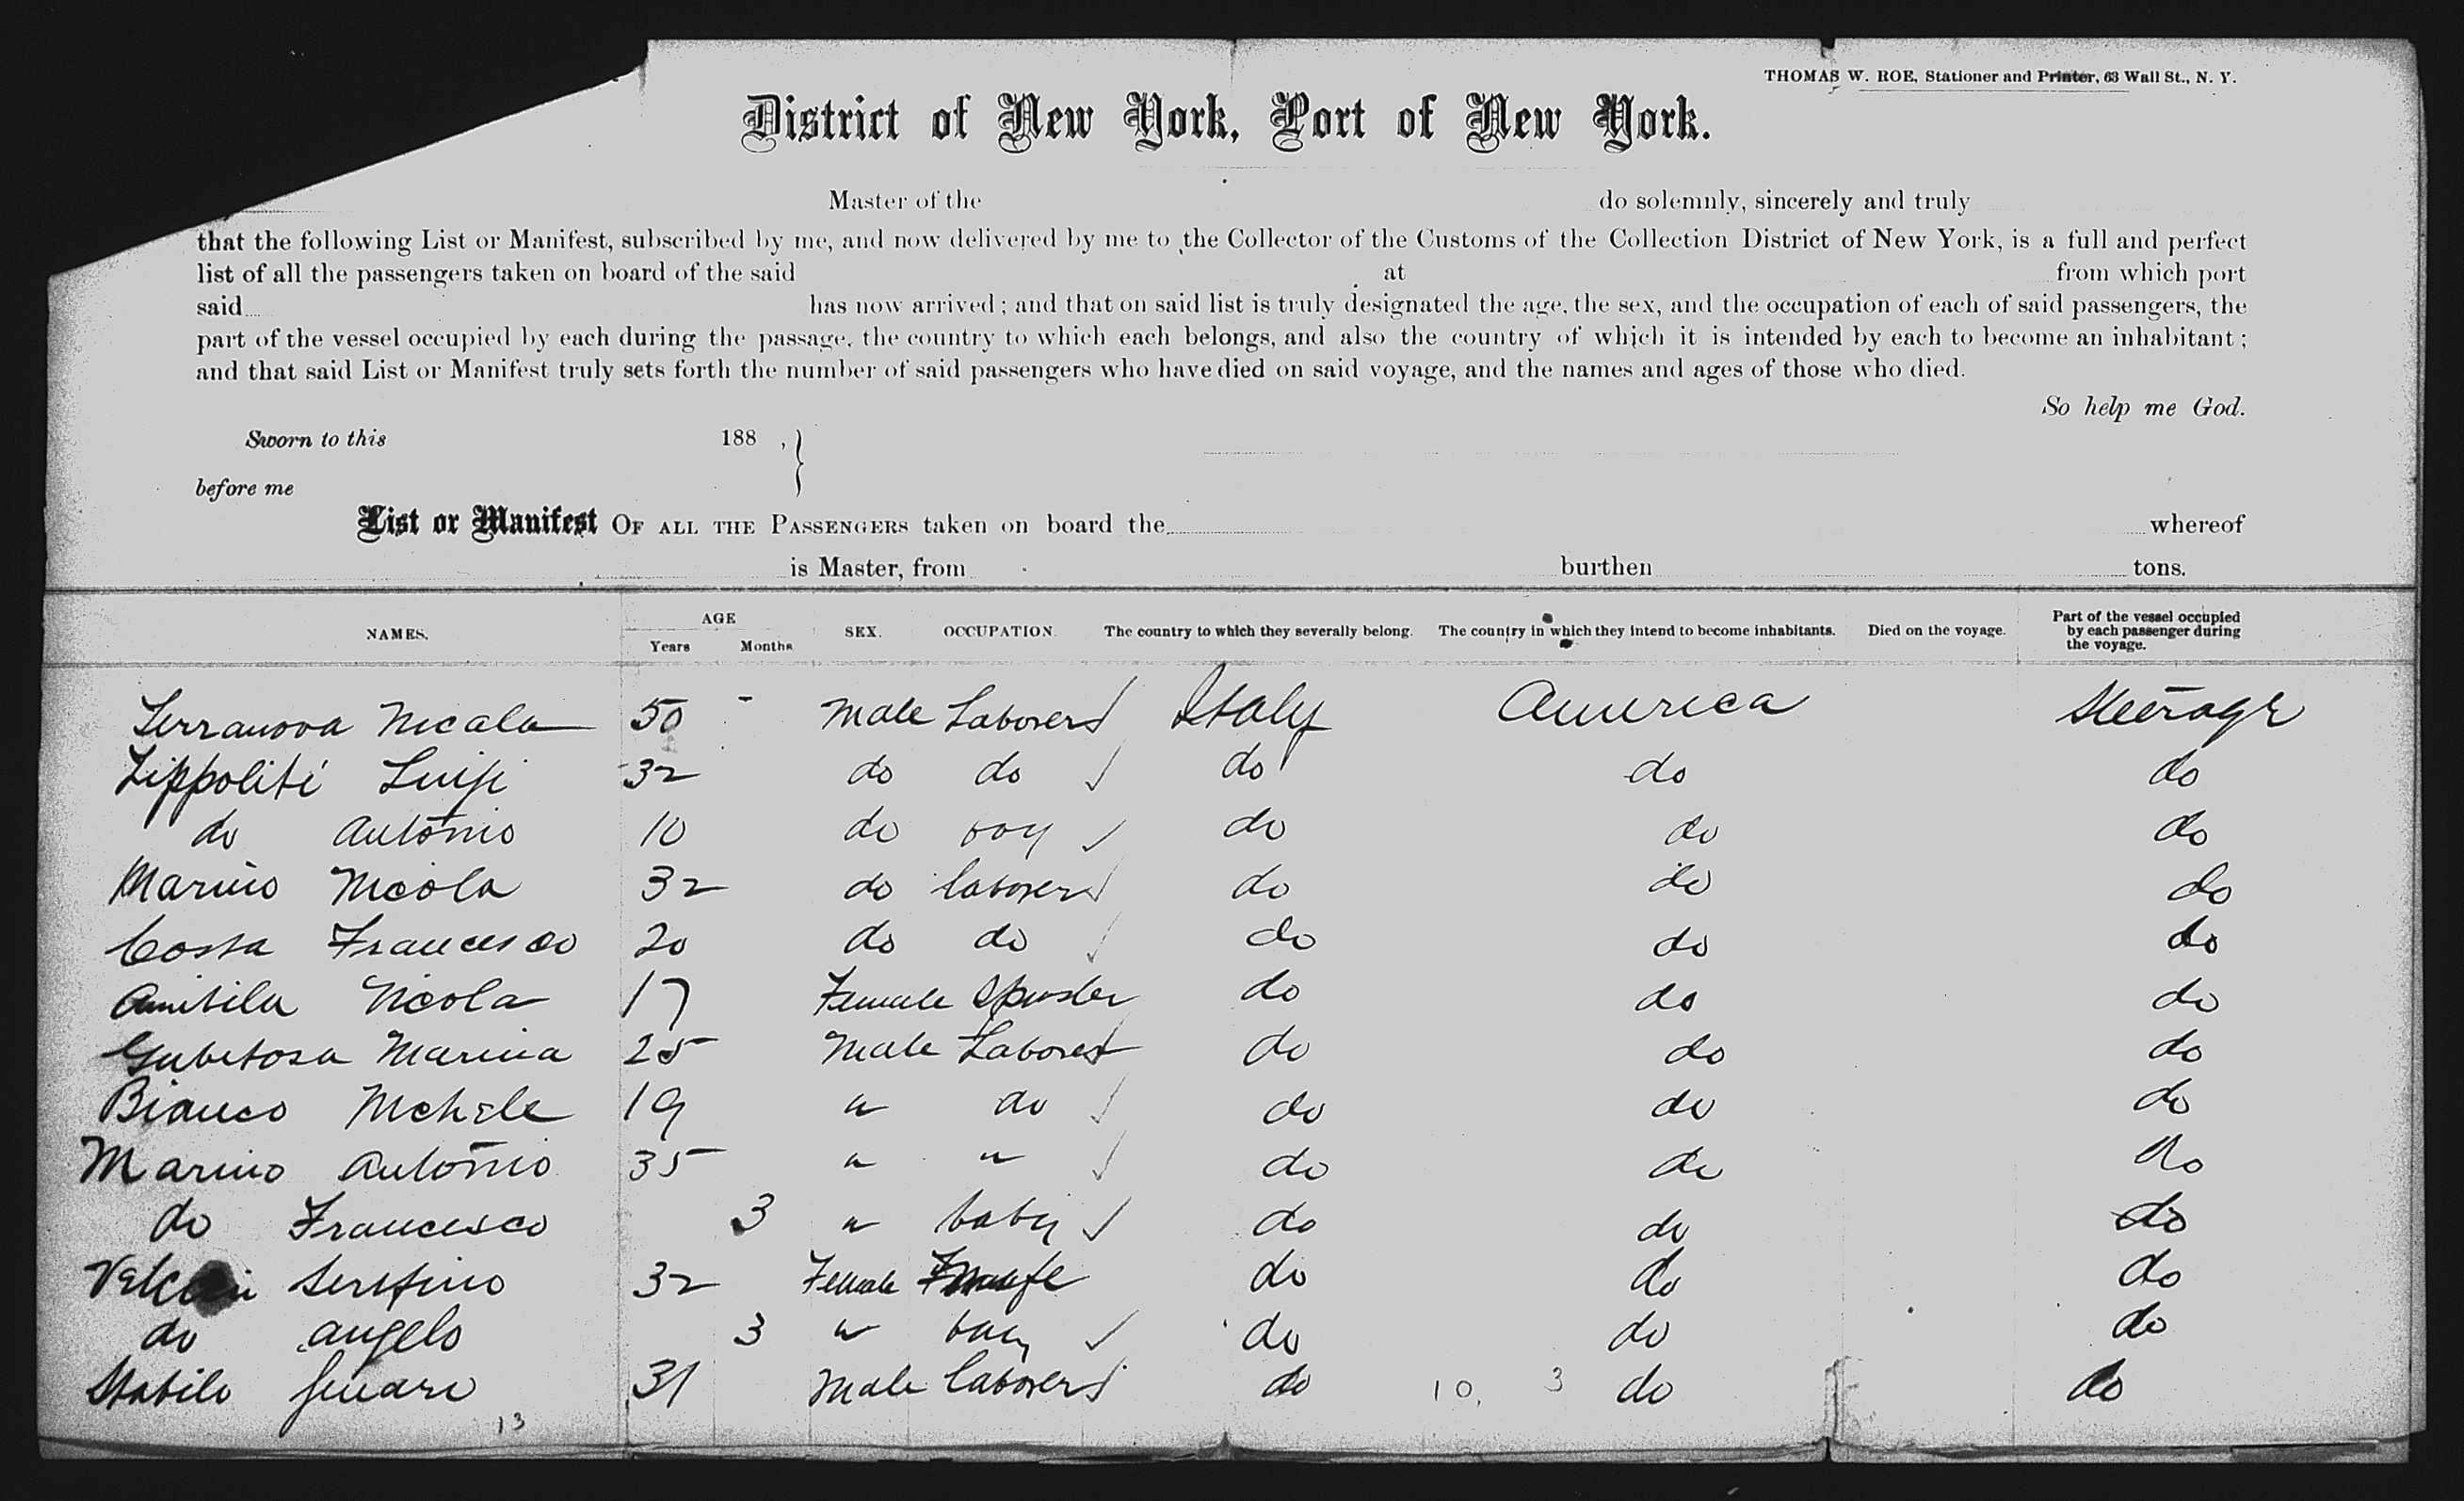 THOMAS W. ROE, Stationer and Printer, 63 Wall St., N. Y.
District of New York, Port of New York.
Master of the do solemnly, sincerely and truly
that the following List or Manifest, subscribed by me, and now delivered by me to the Collector of the Customs of the Collection District of New York, is a full and perfect
list of all the passengers taken on board of the said at from which port
said has now arrived; and that on said list is truly designated the age, the sex, and the occupation of each of said passengers, the
part of the vessel occupied by each during the passage, the country to which each belongs, and also the country of which it is intended by each to become an inhabitant;
and that said List or Manifest truly sets forth the number of said passengers who have died on said voyage, and the names and ages of those who died.
So help me God.
Sworn to this 188 ,
before me
List or Manifest OF ALL THE PASSENGERS taken on board the whereof
is Master, from burthen tons.
NAMES. AGE Years Months SEX. OCCUPATION. The country to which they severally belong. The country in which they intend to become inhabitants. Died on the voyage. Part of the vessel occupied by each passenger during the voyage.
Terranova Nicala 50 - Male Laborer Italy America Steerage
Lippoliti Luigi 32 do do do do do
do Antonio 10 do boy do do do
Marino Nicola 32 do laborer do do do
Cossa Francesco 20 do do do do do
Nicola 17 Female Spinster do do do
Gubitosa Marina 25 Male Laborer do do do
Bianco Michele 19 " do do do do
Marino Antonio 35 " " do do do
do Francesco 3 " baby do do do
32 Female do do do
do Angelo 3 " do do do
Stabile Genaro 31 Male laborer do 10, 3 do do
13